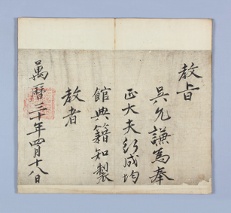 教旨
吳允謙爲奉
正大夫行成均
館典籍知製
教者
萬曆三十年四月十八日